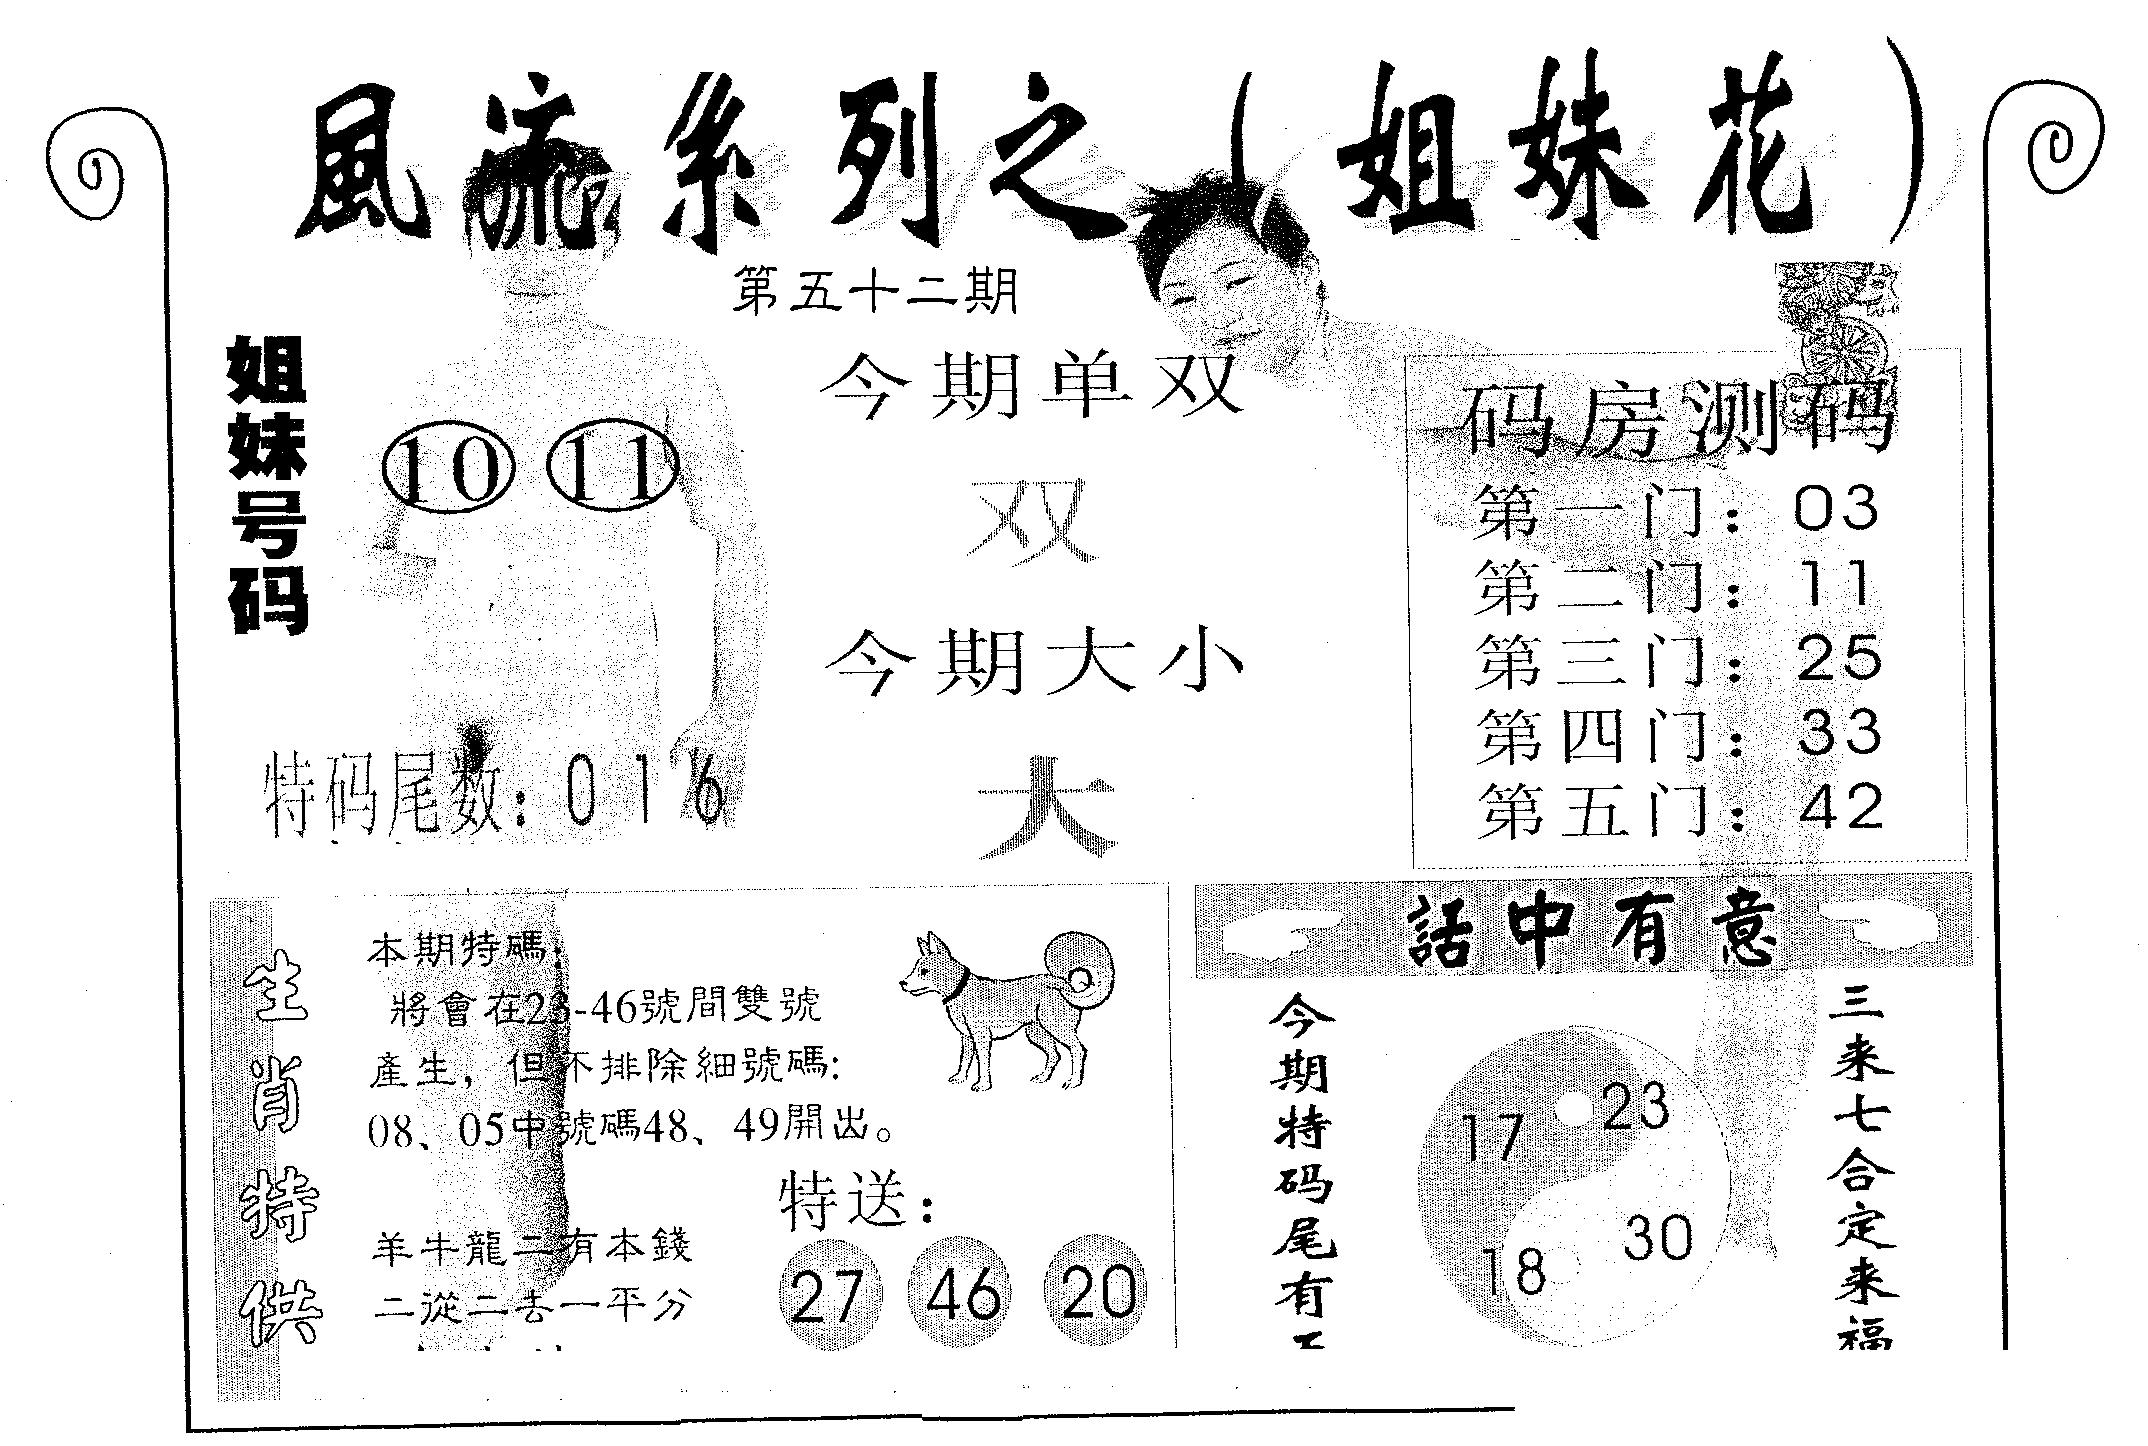 風流系列之（姐妹花）
第五十二期
姐妹号码
10 11
特码尾数：0 1 6
今期单双
双
今期大小
大
码房测码
第一门：03
第二门：11
第三门：25
第四门：33
第五门：42
生肖特供
本期特碼：
將會在23-46號間雙號
產生，但不排除細號碼：
08、05中號碼48、49開出。
羊牛龍二有本錢
二從二去一平分
特送：
27 46 20
話中有意
今期特码尾有
17 23
18 30
三来七合定来福